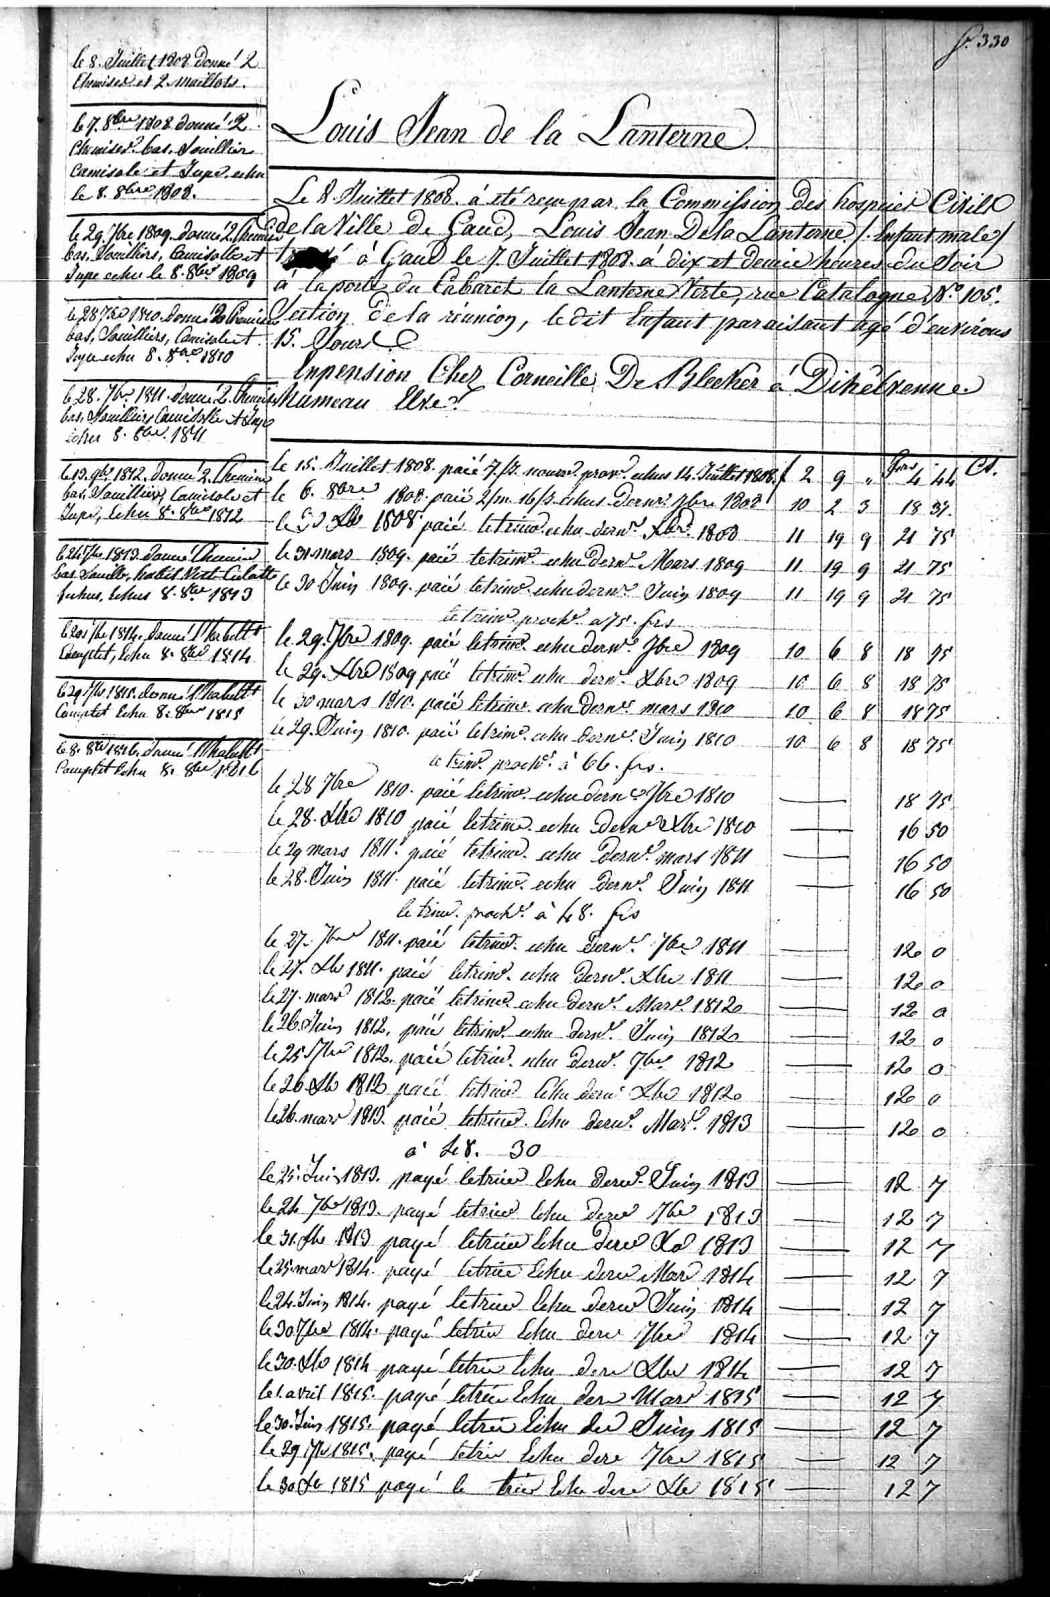 f. 330
le 8. Juillet 1808 donné 2
Chemises et 2 maillots.
le 7. 8bre 1808 donné 2
Chemises bas. Souillier
Camisole et Jupe. echu
le 8. 8bre 1808.
le 29. 7bre 1809. donné 2 Chemises
bas, Souilliers, Camisole et
Jupe echu le 8. 8bre 1809
le 28 7bre 1810. donné 2 Chemises
bas, Souilliers, Camisole et
Jupe echu 8. 8bre 1810
le 28. 7bre 1811. donné 2. Chemises
bas, Souilliers Camisole et Jupe
echu 8. 8bre 1811
le 13. 9bre 1812. donné 2. Chemises
bas, Souilliers, Camisole et
Jupe, Echu 8. 8bre 1812
le 24 7bre 1813. donné Chemise
bas, Souillr, habit Vest Culotte
fichus, echus 8. 8bre 1813
le 20 7bre 1814. donné l'habillt
Complet, Echu 8. 8bre 1814
le 29 7bre 1815. donné l'habillt
Complet Echu 8. 8bre 1815
le 8. 8bre 1816. donné l'habillt
Complet Echu 8. 8bre 1816
Louis Jean de la Lanterne
Le 8. Juillet 1808. á été reçu par la Commission des hospices Civils
de la Ville de Gand, Louis Jean De la Lanterne /. Enfant male /
à Gand le 7. Juillet 1808. à dix et demie heures du Soir
à la porte du Cabaret la Lanterne Verte, rue Catalogne No. 105.
Section de la réunion, le dit Enfant paraisant agé d'environs
15. Jours
Enpension Chez Corneille De Blecker á Dikelvenne.
hameau
frs Cs.
le 15. Juillet 1808. paié 7/. nourr. prov. echus 14. Juillet 1808. f 2 9 " 4 44
le 6. 8bre 1808. paié 2/m. 16/. echus dernr. 7bre 1808 10 2 3 18 37.
le Xbr 1808 paié le trim. echu dernr. Xbr. 1808 11 19 9 21 75
le 31 mars 1809. paié le trimr. echu dernr. Mars 1809 11 19 9 21 75
le 30 Juin 1809. paié le trimr. echu dernr. Juin 1809 11 19 9 21 75
le trim. proch. a 75. frs
le 29. 7bre 1809. paié le trimr. echu dernr. 7bre 1809 10 6 8 18 75
le 29. Xbre 1809 paié le trimr. echu dernr. Xbre 1809 10 6 8 18 75
le 30 mars 1810. paié le trimr. echu dernr. mars 1810 10 6 8 18 75
le 29. Juin 1810. paié le trimr. echu dernr. Juin 1810 10 6 8 18 75
le trimr. prochr. à 66. frs.
le 28 7bre 1810. paié le trimr. echu dernr 7bre 1810 18 75
le 28. Xbre 1810 paié le trimr. echu dernr Xbre 1810 16 50
le 29 mars 1811. paié le trimr. echu dernr. mars 1811 16 50
le 28. Juin 1811. paié le trimr. echu dernr. Juin 1811 16 50
le trimr. prochr. à 48. frs
le 27. 7bre 1811. paié le trimr. echu dernr. 7bre 1811 12 0
le 27. Xbr 1811. paié le trimr. echu dernr. Xbre 1811 12 0
le 27. mars 1812. paié le trimr. echu dernr. Mars. 1812 12 0
le 26. Juin 1812. paié le trimr. echu dernr. Juin 1812 12 0
le 25 7bre 1812. paié le trimr. echu dernr. 7bre. 1812 12 0
le 26 Xbr 1812 paié le trimr Echu dernr Xbre 1812 12 0
le 26. mars 1813. paié le trimr. Echu dernr. Mars. 1813 12 0
à 48. 30
le 25. Juin 1813. payé le trimr Echu dernr. Juin 1813 12 7
le 24 7bre 1813. payé le trimr Echu dernr 7bre 1813 12 7
le 31. Xbr 1813 payé le trimr Echu dernr Xbr 1813 12 7
le 25. mars 1814. payé le trimr Echu dernr Mars 1814 12 7
le 24. Juin 1814. payé le trimr Echu dernr Juin 1814 12 7
le 30 7bre 1814. payé le trimr Echu dernr 7bre 1814 12 7
le 30. Xbr 1814 payé le trimr Echu dernr Xbre 1814 12 7
le 1. avril 1815. payé le trimr Echu dernr Mars 1815 12 7
le 30. Juin 1815. payé le trimr Echu dernr Juin 1815 12 7
le 29 7br 1815. payé le trimr Echu dernr 7bre 1815 12 7
le 30 Xbr 1815 payé le trimr Echu dernr Xbr 1815 12 7